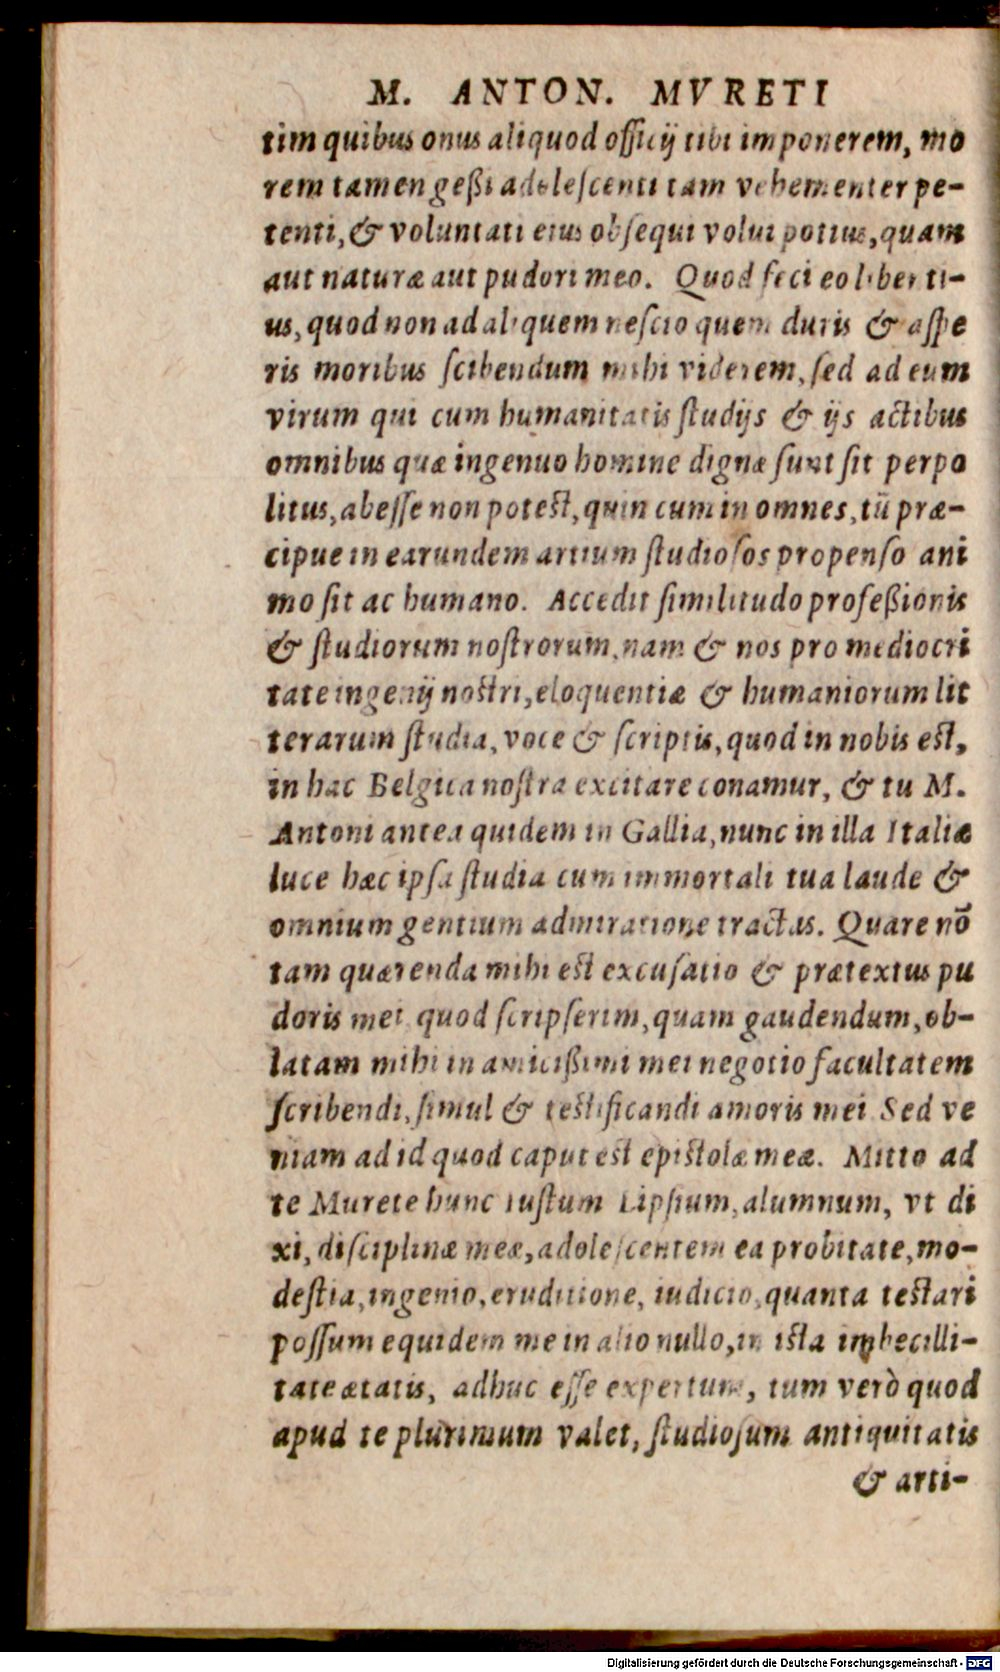 M. ANTON. MVRETI
tim quibus onus aliquod officij tibi imponerem, mo
rem tamen geßi adolescenti tam vehementer pe-
tenti, & voluntati eius obsequi volui potius, quam
aut naturæ aut pudori meo. Quod feci eo liberti-
us, quod non ad aliquem nescio quem duris & aspe
ris moribus scibendum mihi viderem, sed ad eum
virum qui cum humanitatis studijs & ijs actibus
omnibus quæ ingenuo homine dignæ sunt sit perpo
litus, abesse non potest, quin cum in omnes, tũ præ-
cipue in earundem artium studiosos propenso ani
mo sit ac humano. Accedit similitudo profeßionis
& studiorum nostrorum, nam & nos pro mediocri
tate ingenij nostri, eloquentiæ & humaniorum lit
terarum studia, voce & scriptis, quod in nobis est,
in hac Belgica nostra excitare conamur, & tu M.
Antoni antea quidem in Gallia, nunc in illa Italiæ
luce hæc ipsa studia cum immortali tua laude &
omnium gentium admiratione tractas. Quare nõ
tam quærenda mihi est excusatio & prætextus pu
doris mei quod scripserim, quam gaudendum, ob-
latam mihi in amicißimi mei negotio facultatem
scribendi, simul & testificandi amoris mei Sed ve
niam ad id quod caput est epistolæ meæ. Mitto ad
te Murete hunc Iustum Lipsium, alumnum, vt di
xi, disciplinæ meæ, adolescentem ea probitate, mo-
destia, ingenio, eruditione, iudicio, quanta testari
possum equidem me in alio nullo, in ista imbecilli-
tate ætatis, adhuc esse expertum, tum verò quod
apud te plurimum valet, studiosum antiquitatis
& arti-
Digitalisierung gefördert durch die Deutsche Forschungsgemeinschaft - DFG